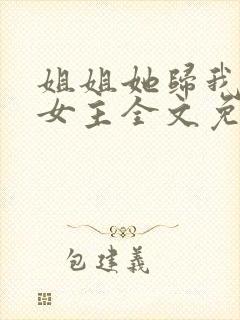 姐姐她歸我
女主全文免
包建義